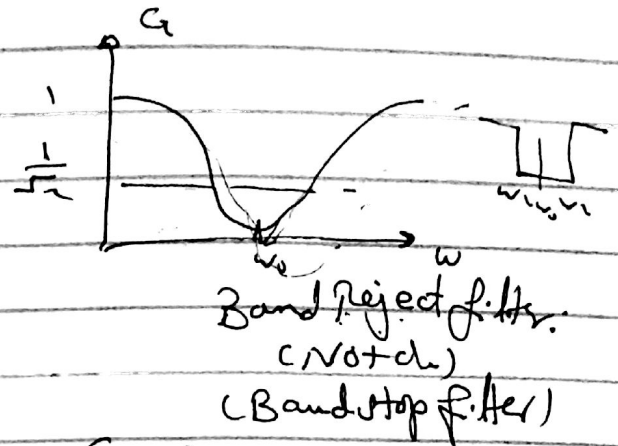 G
1
1/√2
ω₀
ω
ω₁ ω₀ ω₂
Band Reject filter.
(Notch)
(Bandstop filter)